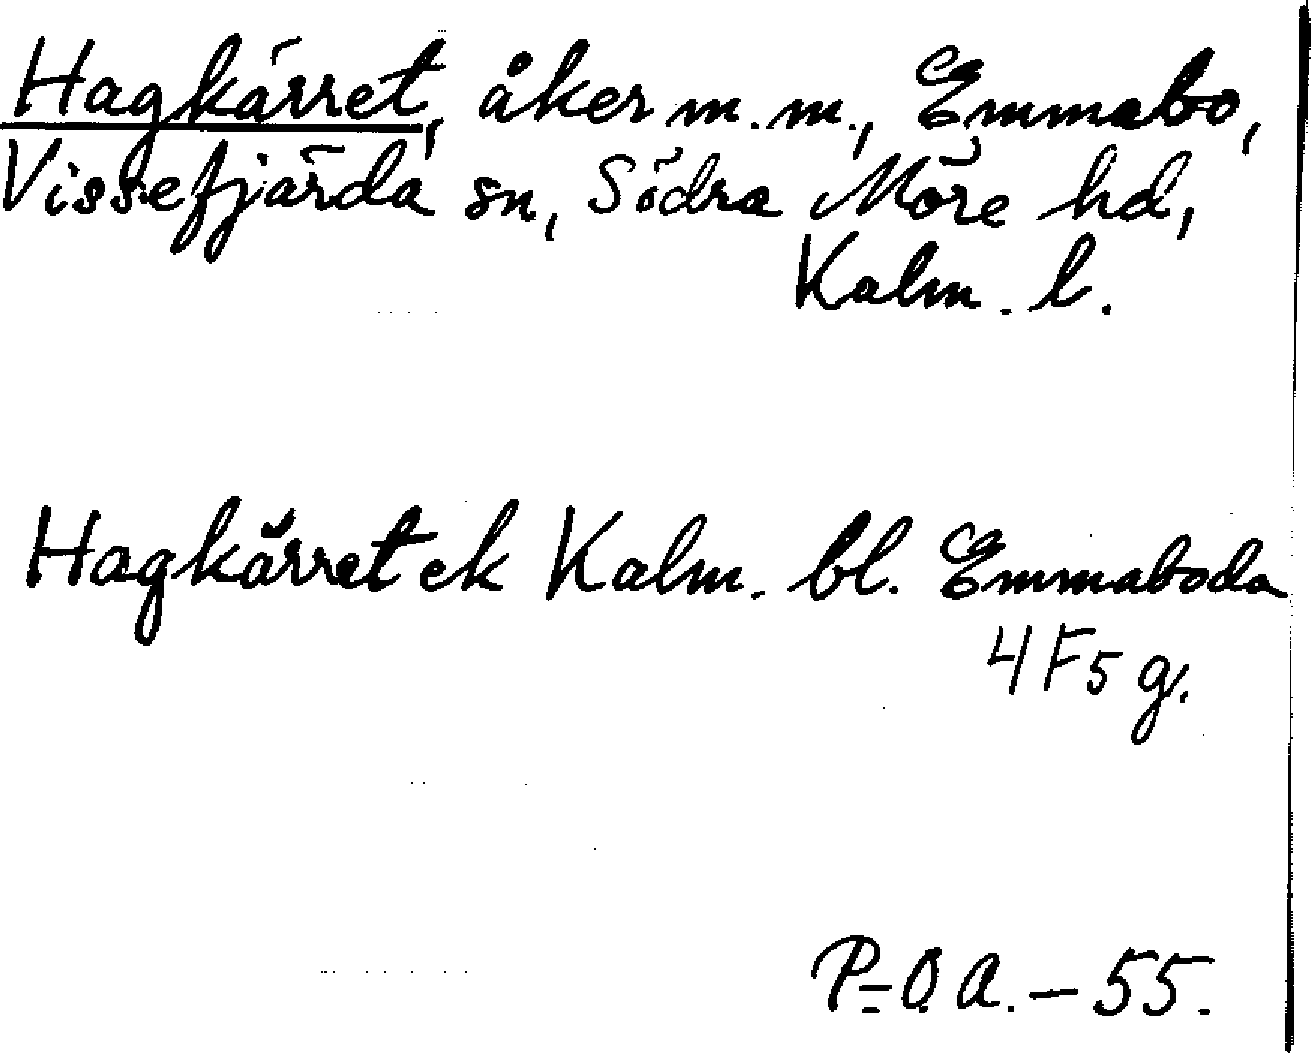 Hagkärret, åker m.m., Emmabo,
Vissefjärda sn, Södra Möre hd,
Kalm. l.
Hagkärret ek Kalm. bl. Emmaboda
4 F 5 g.
P-O A. - 55.